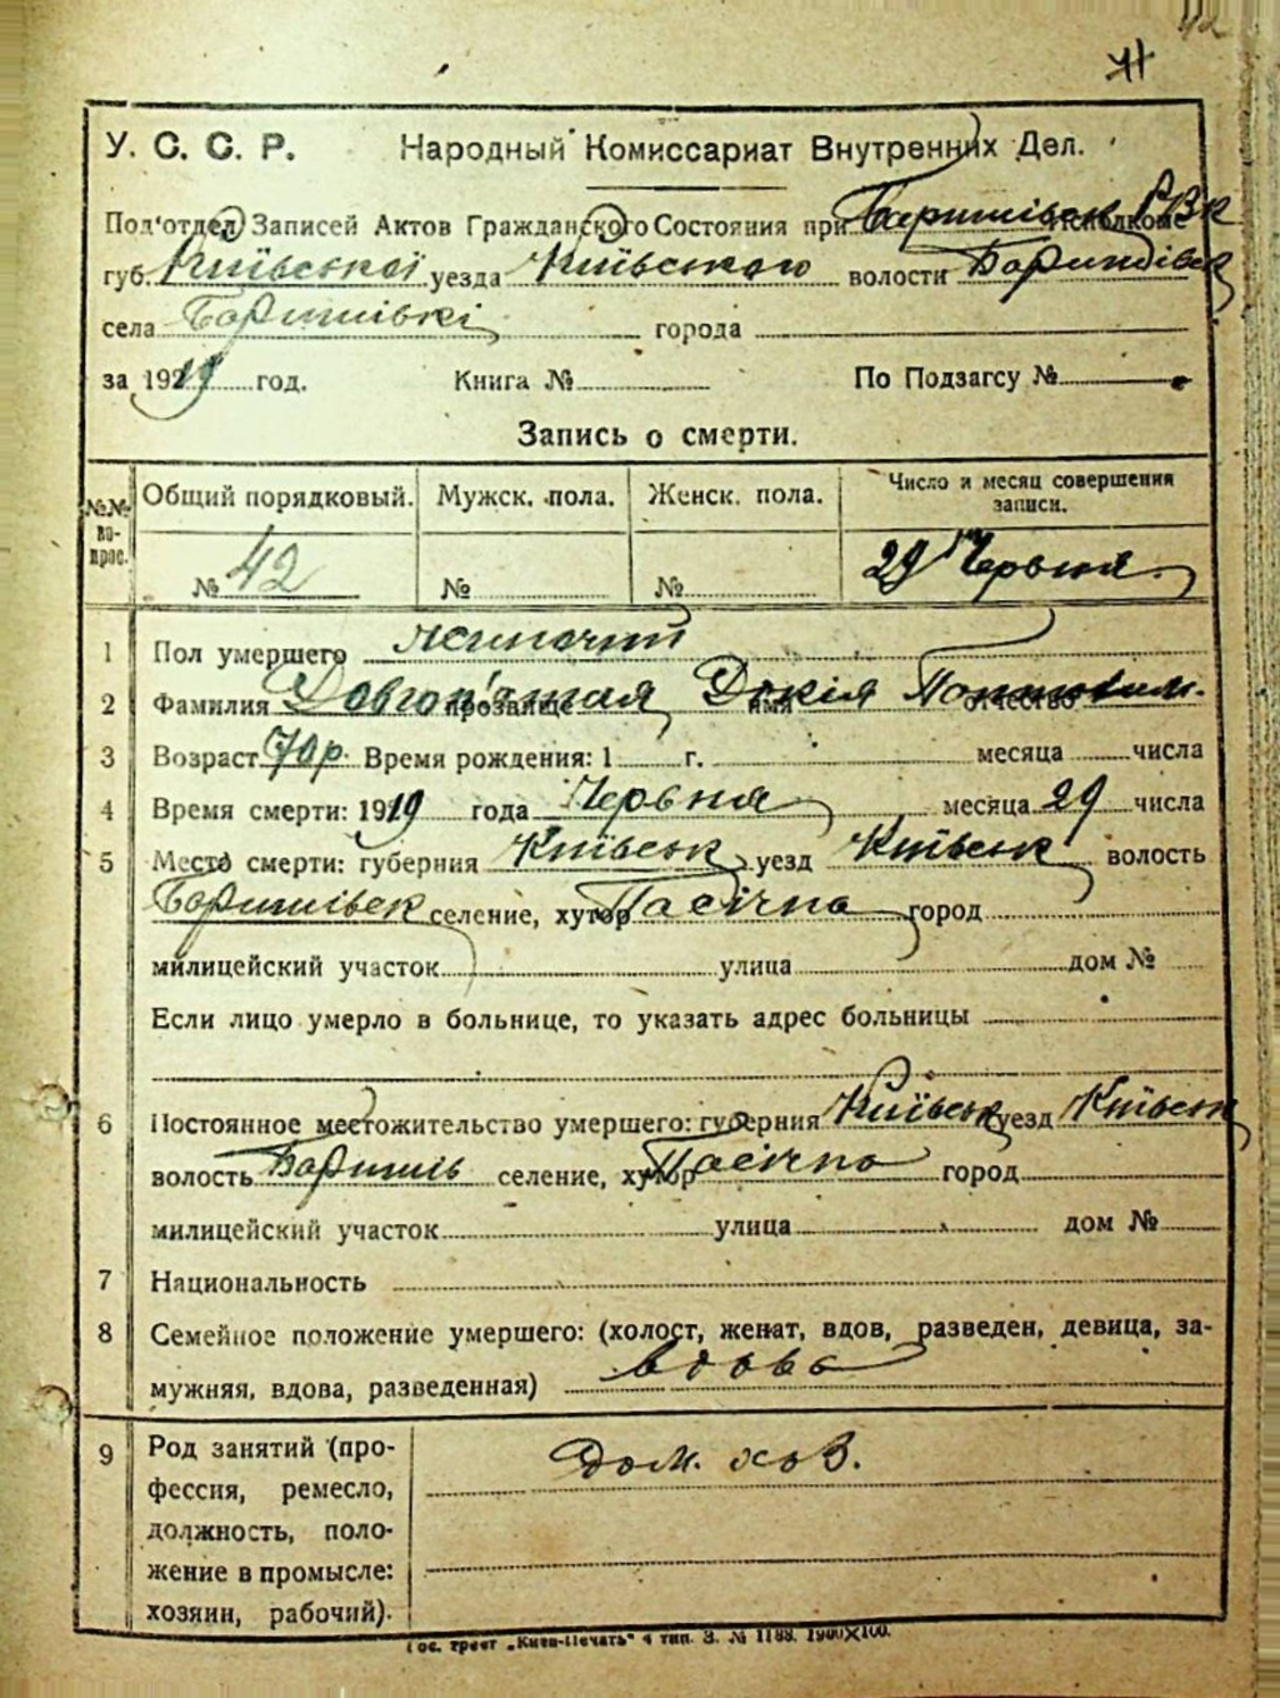 42
У. С. С. Р. Народный Комиссариат Внутренних Дел.
Под'отдел Записей Актов Гражданского Состояния при Баришівськ РВК Исполкоме
губ. Київської уезда Київського волости Баришівськ
села Баришівкі города
за 1919 год. Книга № По Подзагсу №
Запись о смерти.
№№ вопрос. Общий порядковый. Мужск. пола. Женск. пола. Число и месяц совершения записи.
№ 42 № № 29 Червня
1 Пол умершего жіночий
2 Фамилия прозвище Довгоп'ятая имя Докія отчество
3 Возраст 70 р. Время рождения: 1 г. месяца числа
4 Время смерти: 1919 года Червня месяца 29 числа
5 Место смерти: губерния Київськ уезд Київськ волость
Баришівск селение, хутор Пасічна город
милицейский участок улица дом №
Если лицо умерло в больнице, то указать адрес больницы
6 Постоянное местожительство умершего: губерния Київськ уезд Київськ
волость Баришів селение, хутор Пасічна город
милицейский участок улица дом №
7 Национальность
8 Семейное положение умершего: (холост, женат, вдов, разведен, девица, за-
мужняя, вдова, разведенная) вдова
9 Род занятий (про-
фессия, ремесло,
должность, поло-
жение в промысле:
хозяин, рабочий).
дом. хоз.
Гос. трест „Киев-Печать" 4 тип. З. № 1188. 1900X100.